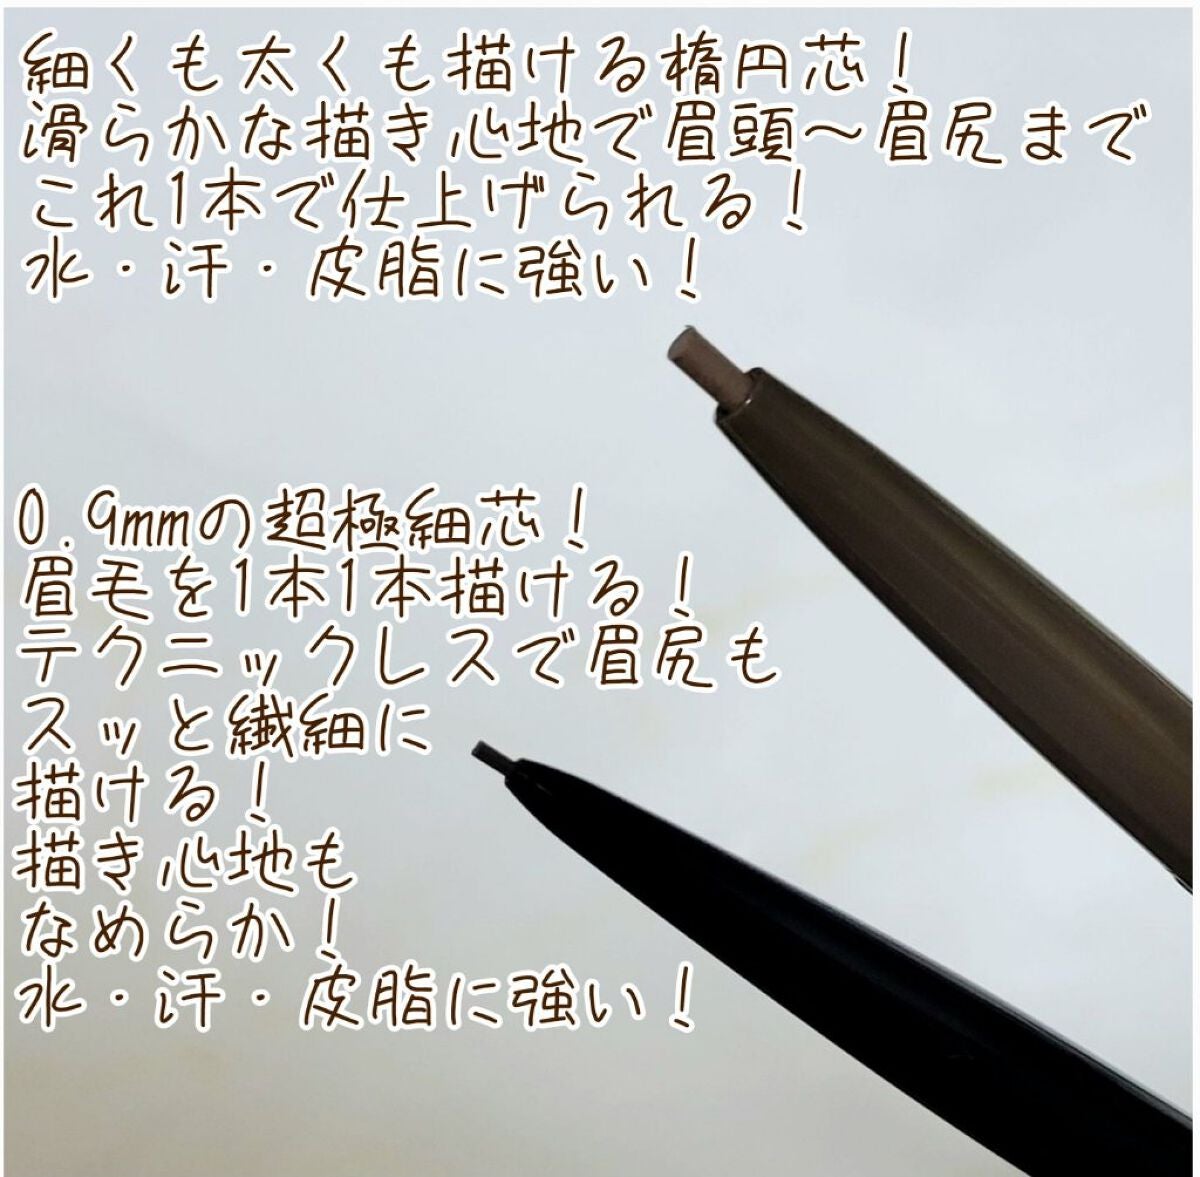 細くも太くも描ける楕円芯！
滑らかな描き心地で眉頭〜眉尻まで
これ1本で仕上げられる！
水・汗・皮脂に強い！
0.9mmの超極細芯！
眉毛を1本1本描ける！
テクニックレスで眉尻も
スッと繊細に
描ける！
描き心地も
なめらか！
水・汗・皮脂に強い！